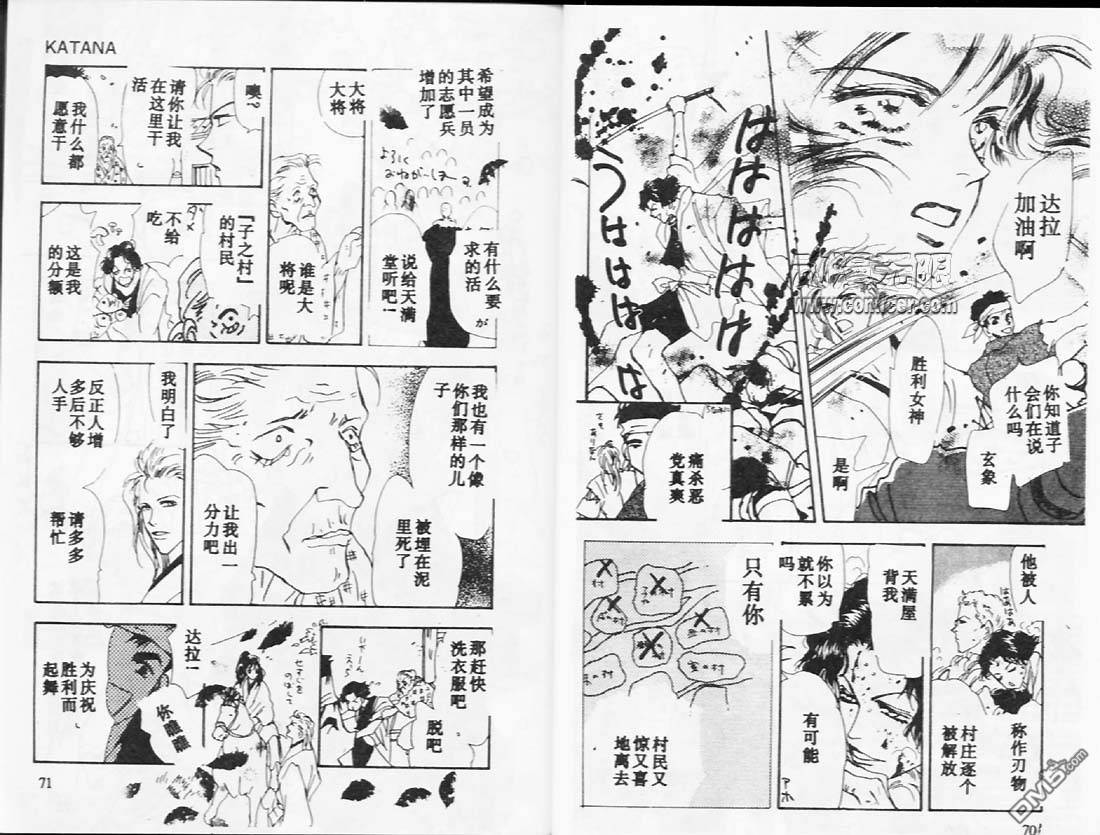 达拉
加油啊
はははは
うははは
你知道子
会们在说
什么吗
玄象
胜利女神
是啊
痛杀恶
党真爽
でも
他被人
称作刃物
村庄逐个
被解放
天满屋
背我
你以为
就不累
吗
有可能
アホ
只有你
村民又
惊又喜
地离去
70
KATANA
希望成为
其中一员
的志愿兵
增加了
よろしく
おねがいしまーす
有什么要
求的活
が
说给天满
堂听吧!
大将
大将
谁是大
将呢
噢?
请你让我
在这里干
活
我什么都
愿意干
『子之村』
的村民
ダメ
不给
吃
这是我
的分额
我也有一个像
你们那样的儿
子
被埋在泥
里死了
让我出一
分力吧
我明白了
反正人增
多后不够
人手
请多多
帮忙
那赶快
洗衣服吧
脱吧
达拉!
你瞧瞧
为庆祝
胜利而
起舞
71
www.comicsr.com
DM5.com